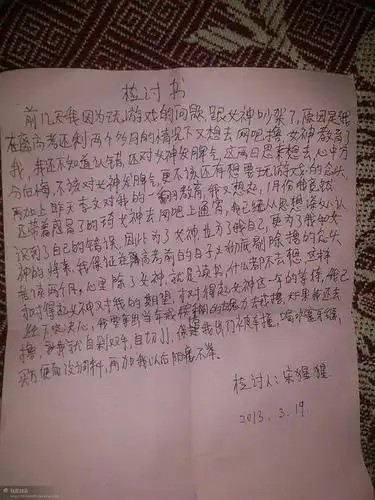 检讨书
前几天我因为玩游戏的问题，跟女神吵架了，原因是我
在离高考还剩两个多月的情况下又想去网吧撸，女神教育了
我，我还不知道认错，还对女神发脾气，这两日思来想去，心中万
分后悔，不该对女神发脾气，更不该还存想要玩游戏的念头
再加上昨天李文对我的一翻教育，我又想起，1月份我竟然
还带着 的女神去网吧上通宵，我已经从思想深处认
识到了自己的错误，因此为了女神也为了我自己，更为了我和女
神的将来，我保证在离高考前的日子里彻底剔除撸的念头
我这两个月，心里除了女神，就是读书，什么都不去想，这样
才对得起女神对我的期望，才对得起女神这一年的等待，我已
经下定决心，我要拿出当年 的魄力去戒撸，如果我还去
撸，我就自剁双手，自切JJ，保准我出门被车撞，喝水塞牙缝，
买方便面没调料，再加我以后阳痿不举。
检讨人：宋猩猩
2013.3.19.